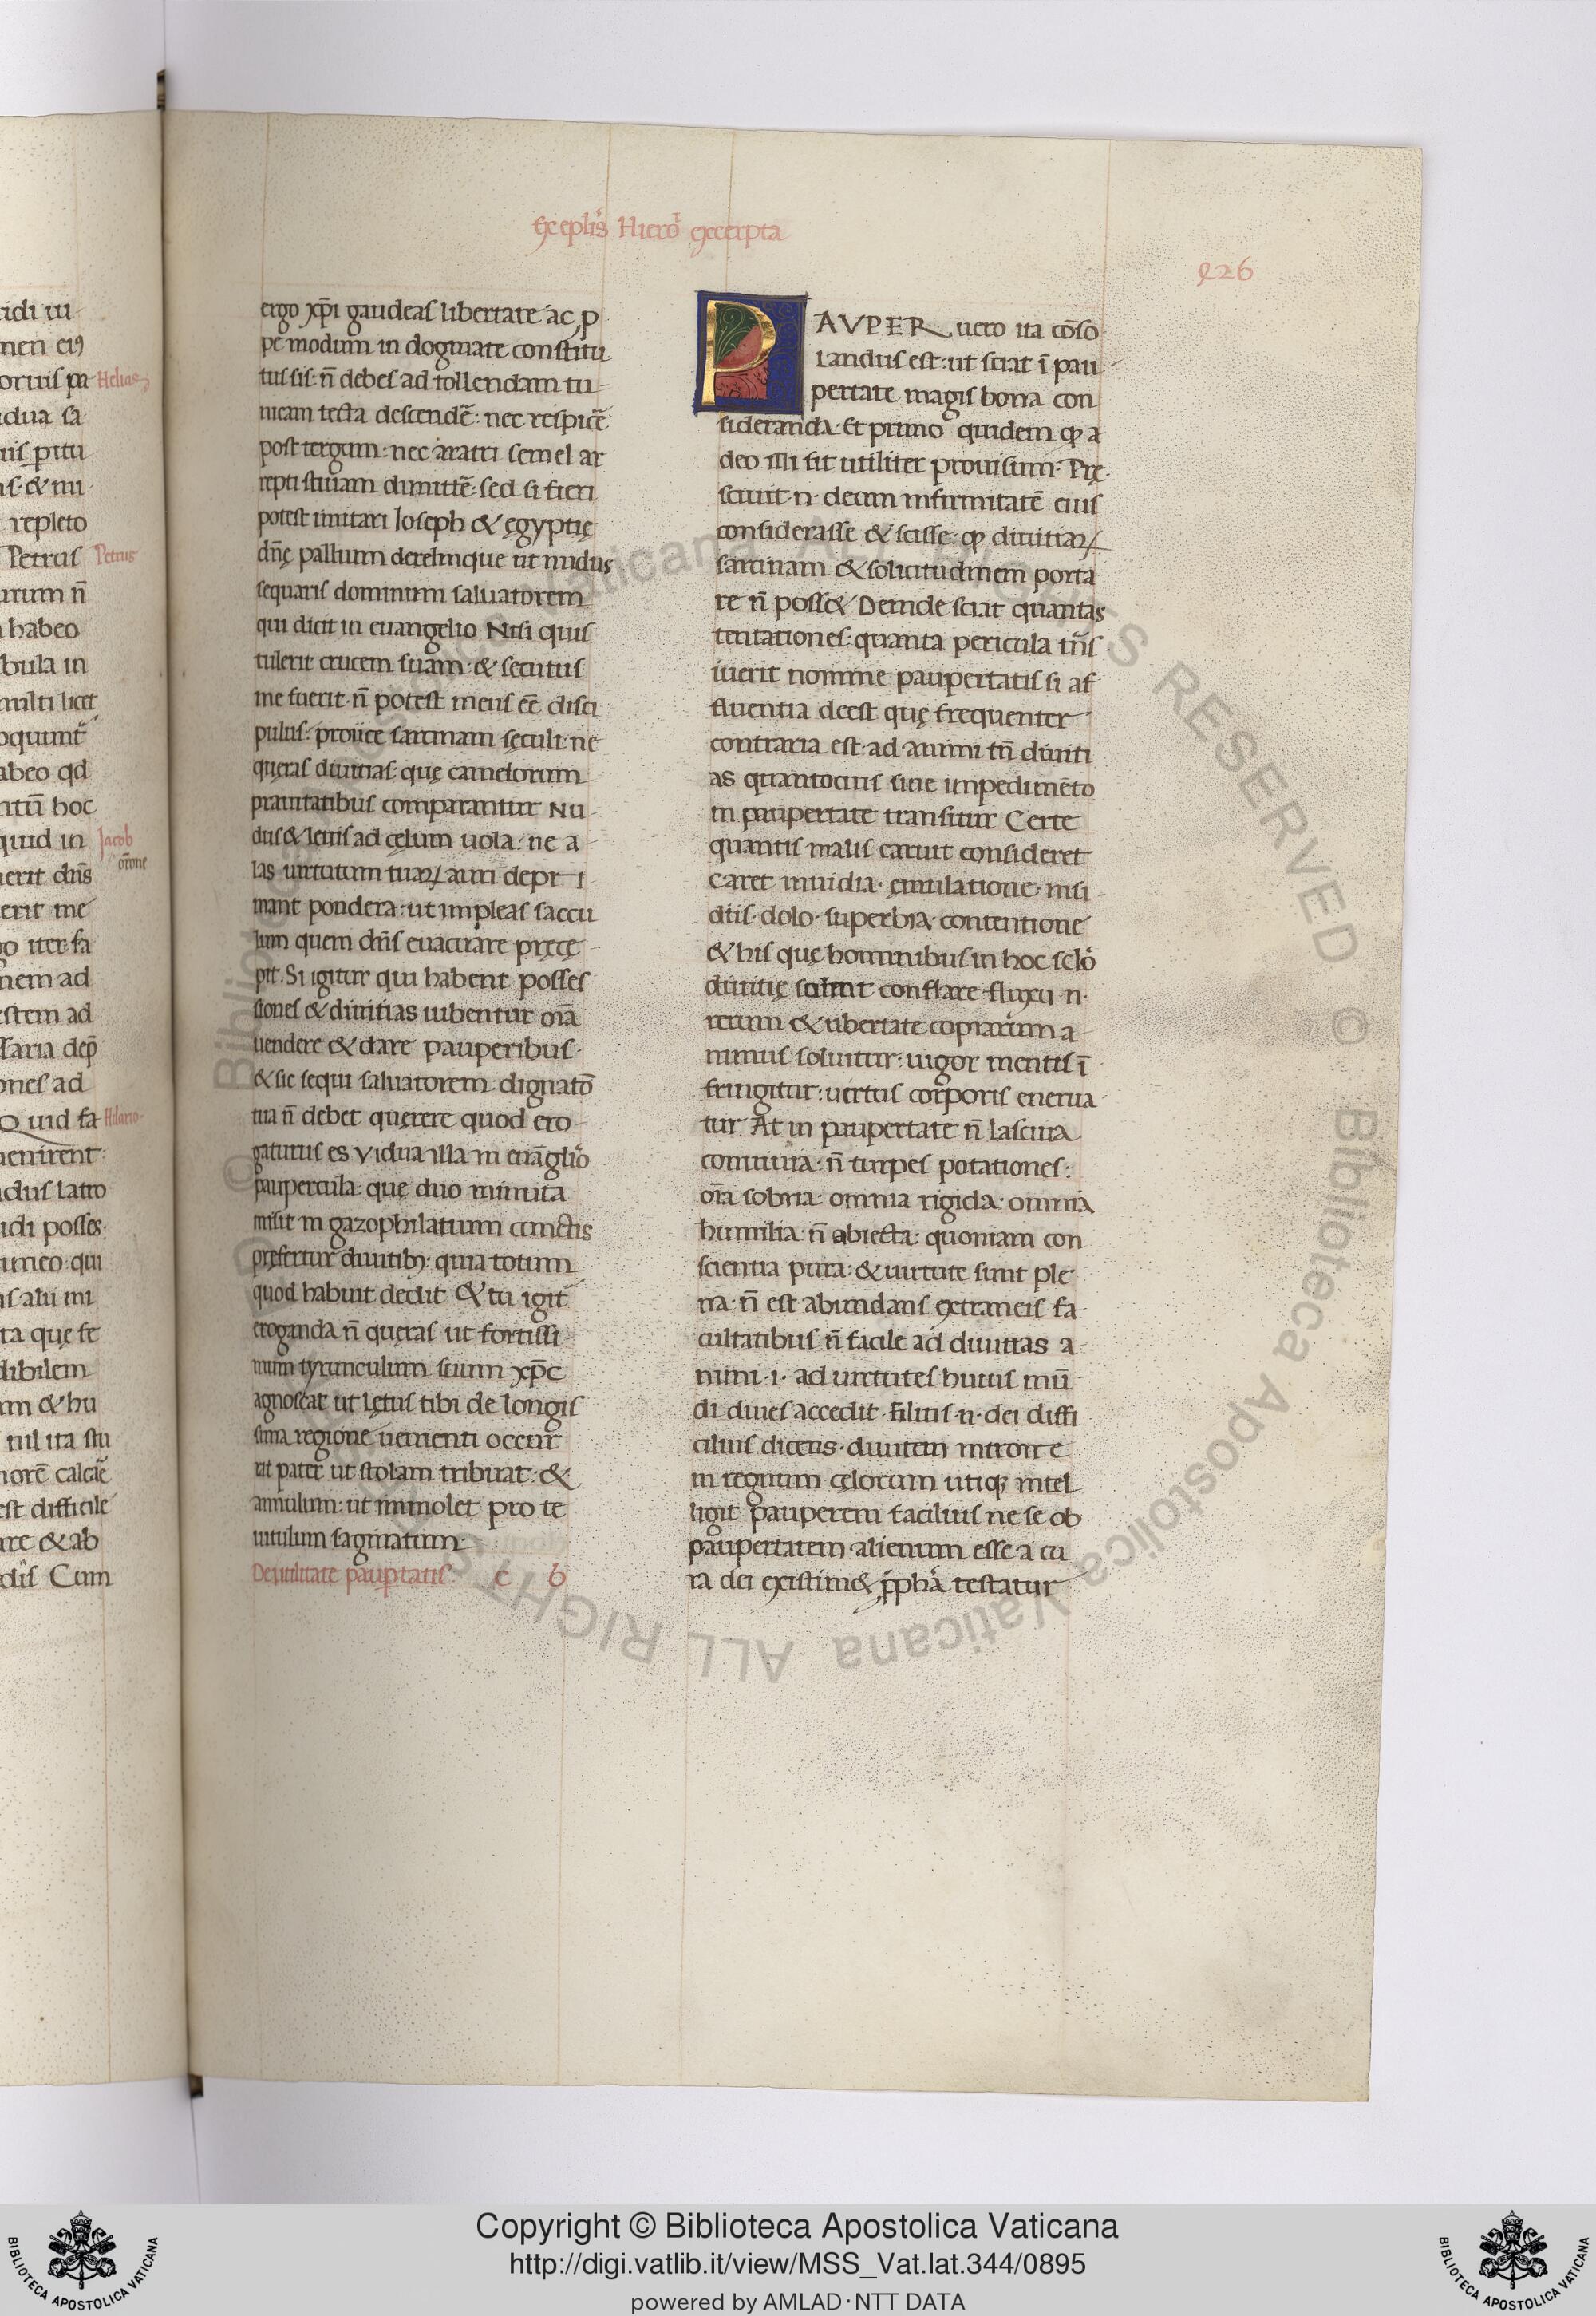 Ex eplis Hiero excerpta
426
idi iu
men ei9
oruis pa
Helias
idua sa
repleto
Petrus
Petrus
habeo
bula in
multi licet
abeo qd
hoc
quid in
Jacob
orone
erit dns
erit me
go iter fa
nem ad
estem ad
ones ad
Quid fa
dus latro
idi posses
timeo qui
ta que fe
dibilem
m & hu
nil ita stu
est difficile
re & ab
Cum
ergo xp̄i gaudeas libertate ac p
pe modum in dogmate constitu
tus sis: n̄ debes ad tollendam tu-
nicam tecta descendē: nec respicē
post tergum: nec aratri semel ar
repti stiuam dimittē: sed si fieri
potest imitari Ioseph & ęgyptię
dn̄ę pallium derelinque ut nudus
sequaris dominum saluatorem
qui dicit in euangelio Nisi quis
tulerit crucem suam & secutus
me fuerit n̄ potest meus eē disci
pulus: proiice sarcinam sęculi: ne
quęras diuitias: quę camelorum
prauitatibus comparantur Nu-
dus & leuis ad cęlum uola: ne a-
las uirtutum tuaꝝ auri depri-
mant pondera: ut impleas saccu
lum quem dn̄s euacuare pręcę-
pit. Si igitur qui habent posses
siones & diuitias iubentur oīa
uendere & dare pauperibus.
& sic sequi saluatorem: dignatō
tua n̄ debet quęrere quod ero-
gaturus es Vidua illa in euāglio
paupercula: quę duo minuta
misit in gazophilatium cunctis
prefertur diuitibꝫ: quia totum
quod habuit dedit & tu igit̄
eroganda n̄ quęras ut fortissi
mum tyrunculum suum xp̄c
agnoscat ut lętus tibi de longis
sima regione uenienti occur
rat pater ut stolam tribuat: &
annulum: ut immolet pro te
uitulum saginatum.
De utilitate paup̱tatis. c b
PAVPER uero ita cōso
landus est: ut sciat ī pau
pertate magis bona con
sideranda. Et primo quidem ꝙ a
deo illi sit utiliter prouisum. Prę
sciuit .n. deum infirmitatē eius
considerasse & scisse: ꝙ diuitiaꝝ
sarcinam & solicitudinem porta
re n̄ poss& Deinde sciat quantas
tentationes: quanta pericula trn̄s
iuerit nomine paupertatis si af
fluentia deest quę frequenter
contraria est: ad animi tn̄ diuiti
as quantocius sine impedimēto
in paupertate transitur Certe
quantis malis caruit consideret
caret inuidia. ęmulatione. insi
diis. dolo. superbia. contentione
& his quę hominibus in hoc sclō
diuitię solent conflare fluxu .n.
rerum & ubertate copiarum a-
nimus soluitur: uigor mentis ī
fringitur: uirtus corporis enerua
tur At in paupertate n̄ lasciua
conuiuia: n̄ turpes potationes:
oīa sobria: omnia rigida: omnia
humilia. n̄ abiecta: quoniam con
scientia pura: & uirtute sunt ple
na. n̄ est abundans extraneis fa
cultatibus n̄ facile ad diuitias a-
nimi .i. ad uirtutes huius mū
di diues accedit. filius .n. dei diffi
cilius dicens. diuitem introire
in regnum cęlorum utiqꝫ intel
ligit pauperem facilius ne se ob
paupertatem alienum esse a cu
ra dei existim& p̄pha testatur
Copyright © Biblioteca Apostolica Vaticana
http://digi.vatlib.it/view/MSS_Vat.lat.344/0895
powered by AMLAD·NTT DATA